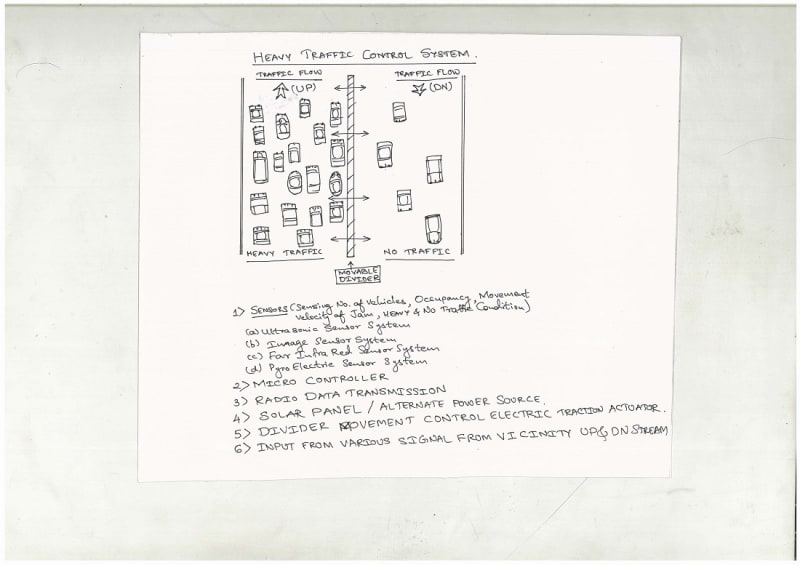 HEAVY TRAFFIC CONTROL SYSTEM.
TRAFFIC FLOW
(UP)
TRAFFIC FLOW
(DN)
HEAVY TRAFFIC
NO TRAFFIC
MOVABLE
DIVIDER
1) SENSORS (Sensing No. of Vehicles, Occupancy, Movement
Velocity of Jam, HEAVY & No Traffic Condition)
(a) Ultrasonic Sensor System
(b) Image Sensor System
(c) Far Infra Red Sensor System
(d) Pyro Electric Sensor System
2) MICRO CONTROLLER
3) RADIO DATA TRANSMISSION
4) SOLAR PANEL / ALTERNATE POWER SOURCE.
5) DIVIDER MOVEMENT CONTROL ELECTRIC TRACTION ACTUATOR.
6) INPUT FROM VARIOUS SIGNAL FROM VICINITY UP & DN STREAM